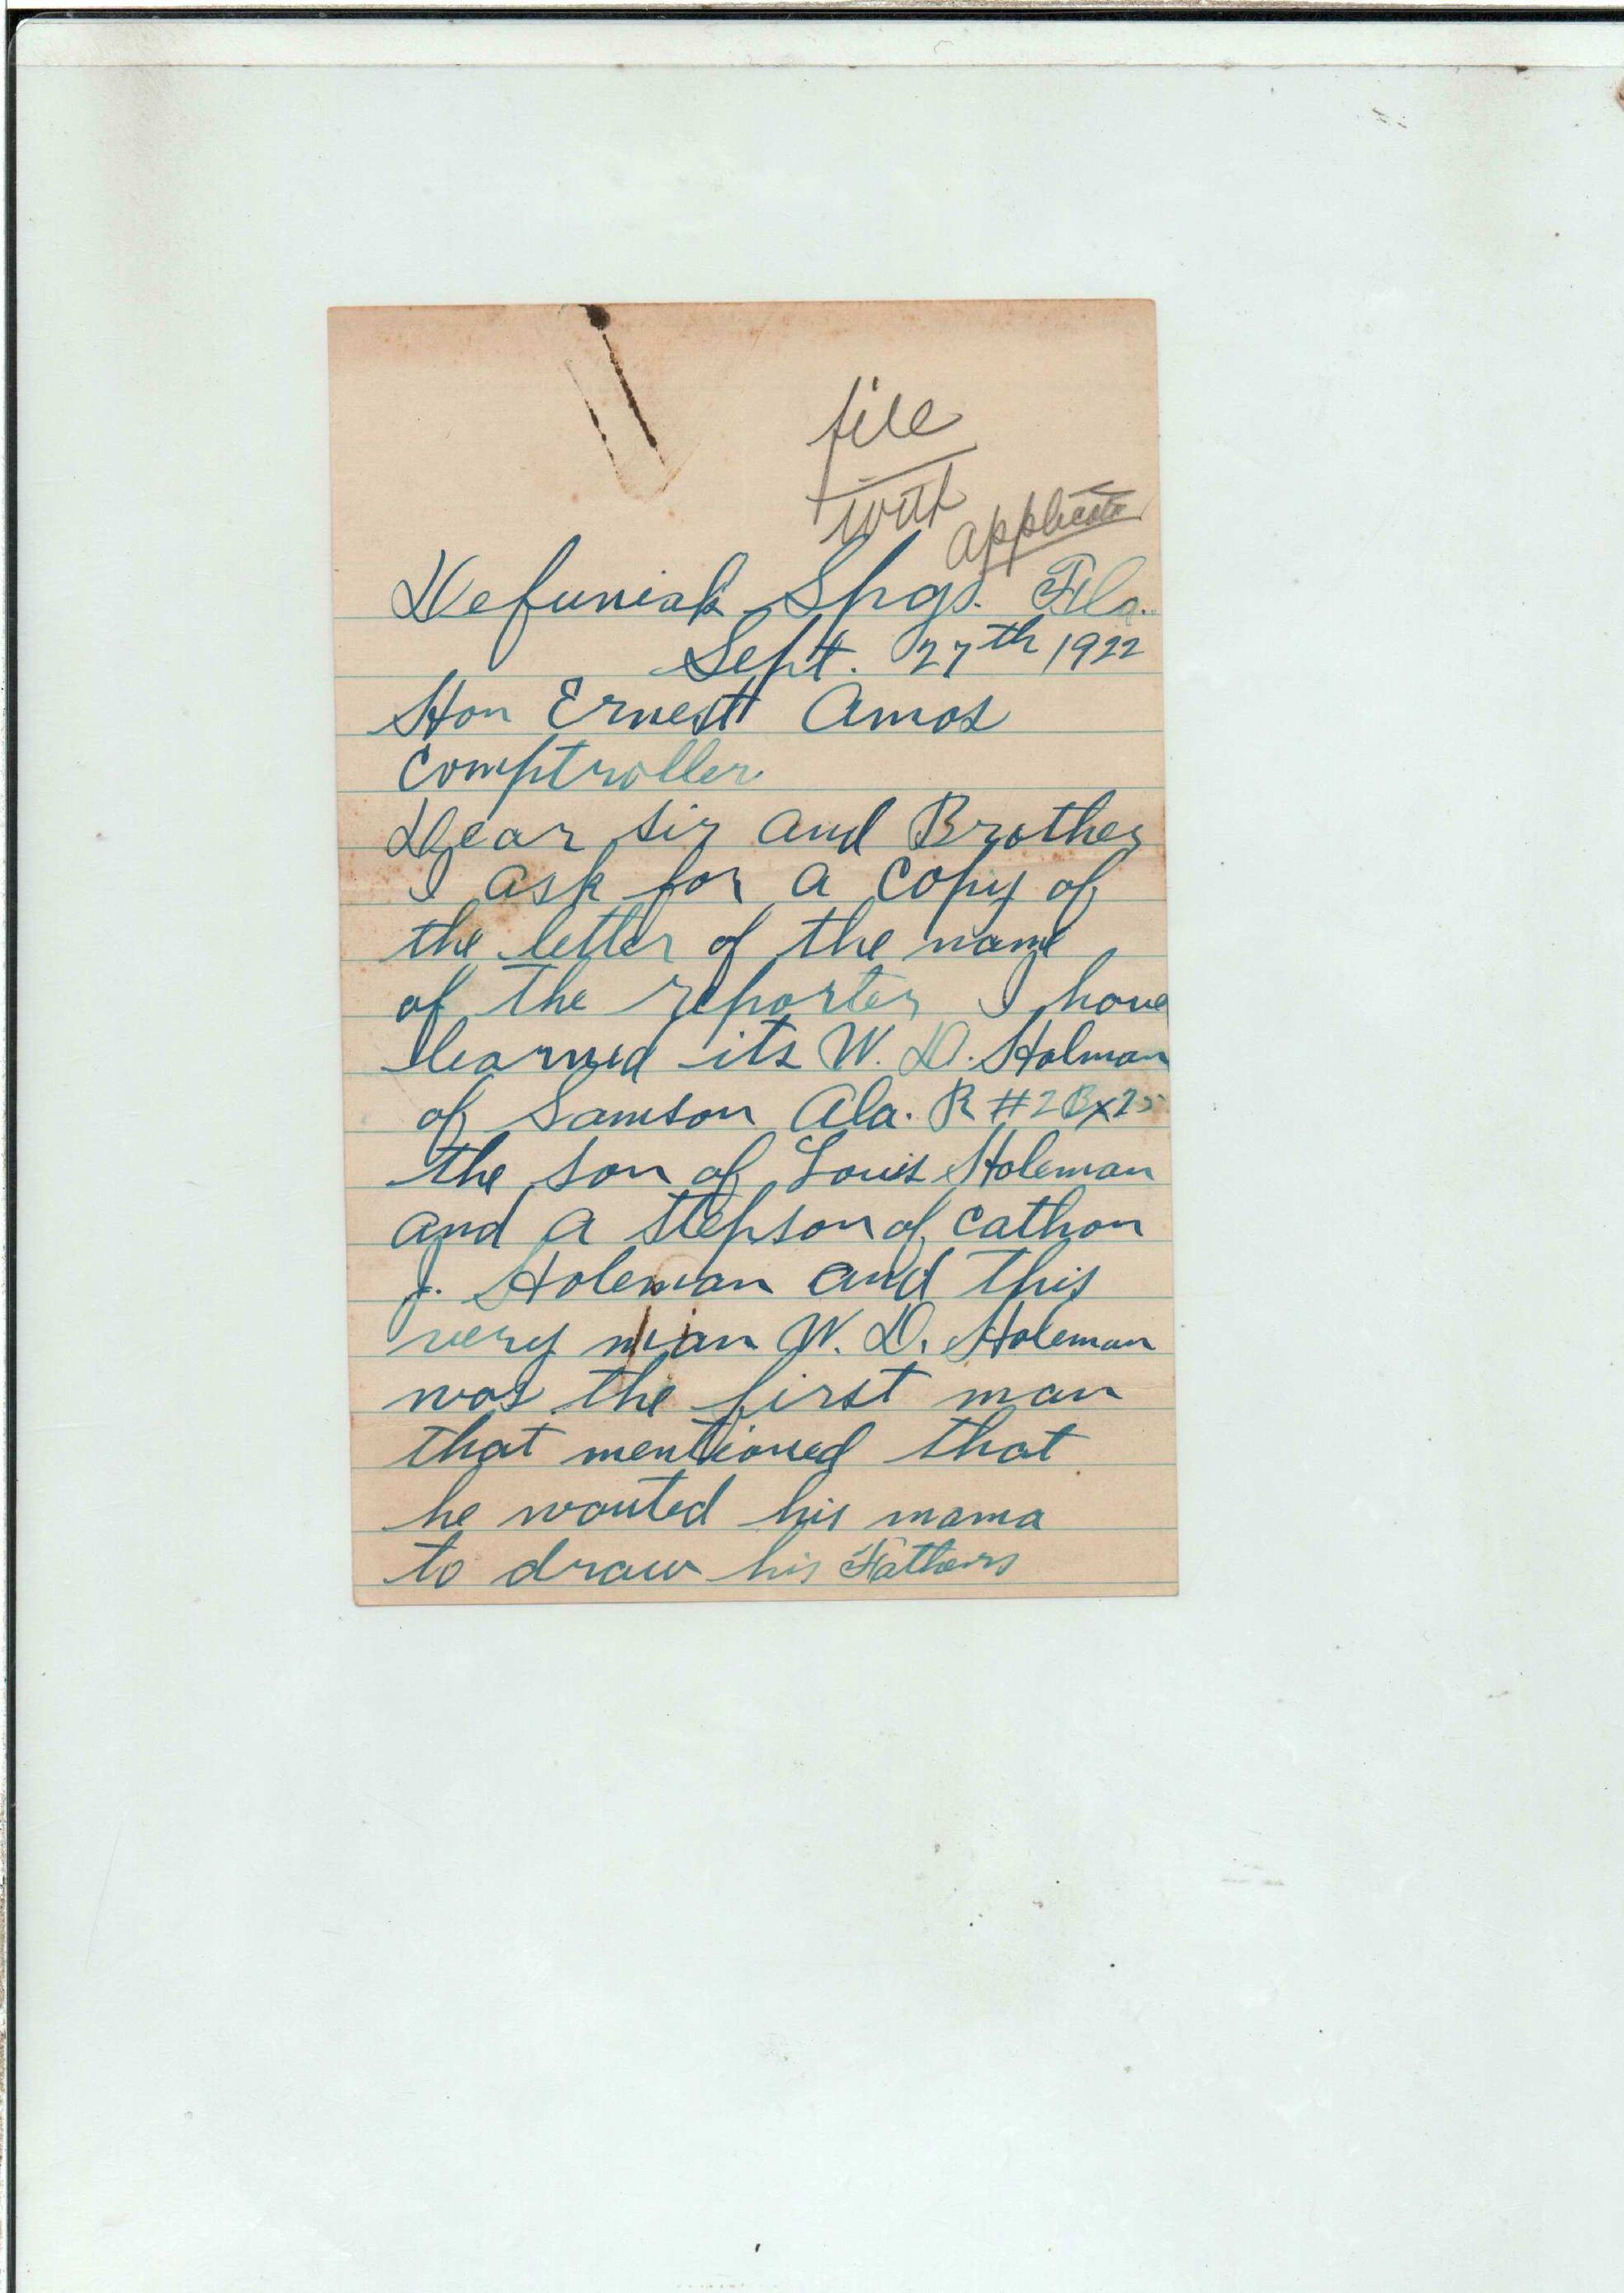 file
with
applicatn
Defuniak Spgs. Fla.
Sept. 27th 1922
Hon Ernest Amos
Comptroller
Dear Sir and Brother
I ask for a copy of
the letter of the name
of the reporter I have
learned its W. D. Holman
of Samson Ala. R #2 Bx 25
the son of Louis Holeman
and a stepson of Cathon
J. Holeman and this
very man W. D. Holeman
was the first man
that mentioned that
he wanted his mama
to draw his Fathers